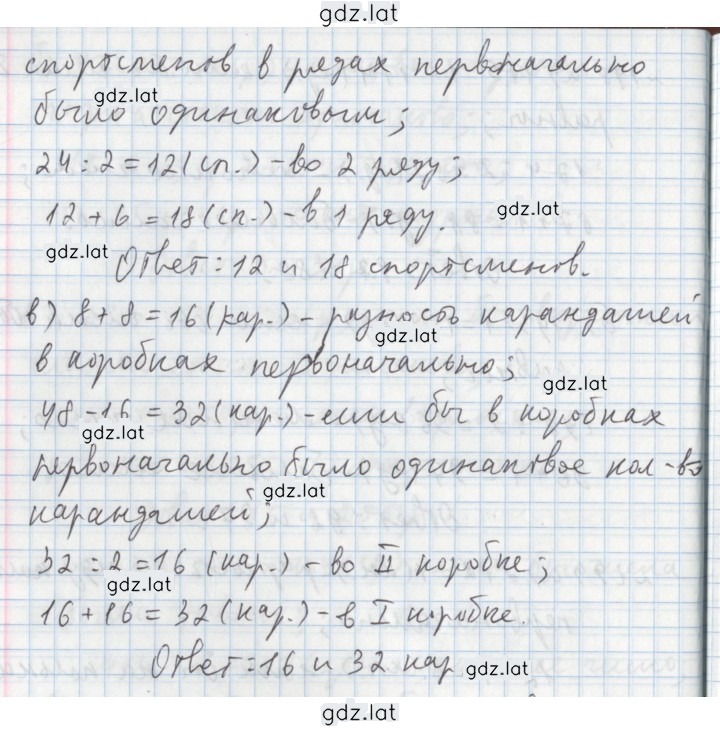 gdz.lat
спортсменов в рядах первоначально
gdz.lat
было одинаковым;
24 : 2 = 12 (сп.) - во 2 ряду;
12 + 6 = 18 (сп.) - в 1 ряду.
gdz.lat
gdz.lat
Ответ: 12 и 18 спортсменов.
в) 8 + 8 = 16 (кар.) - разность карандашей
gdz.lat
в коробках первоначально;
gdz.lat
48 - 16 = 32 (кар.) - если бы в коробках
gdz.lat
первоначально было одинаковое кол-во
gdz.lat
карандашей;
32 : 2 = 16 (кар.) - во II коробке;
gdz.lat
16 + 16 = 32 (кар.) - в I коробке.
Ответ: 16 и 32 кар
gdz.lat
gdz.lat